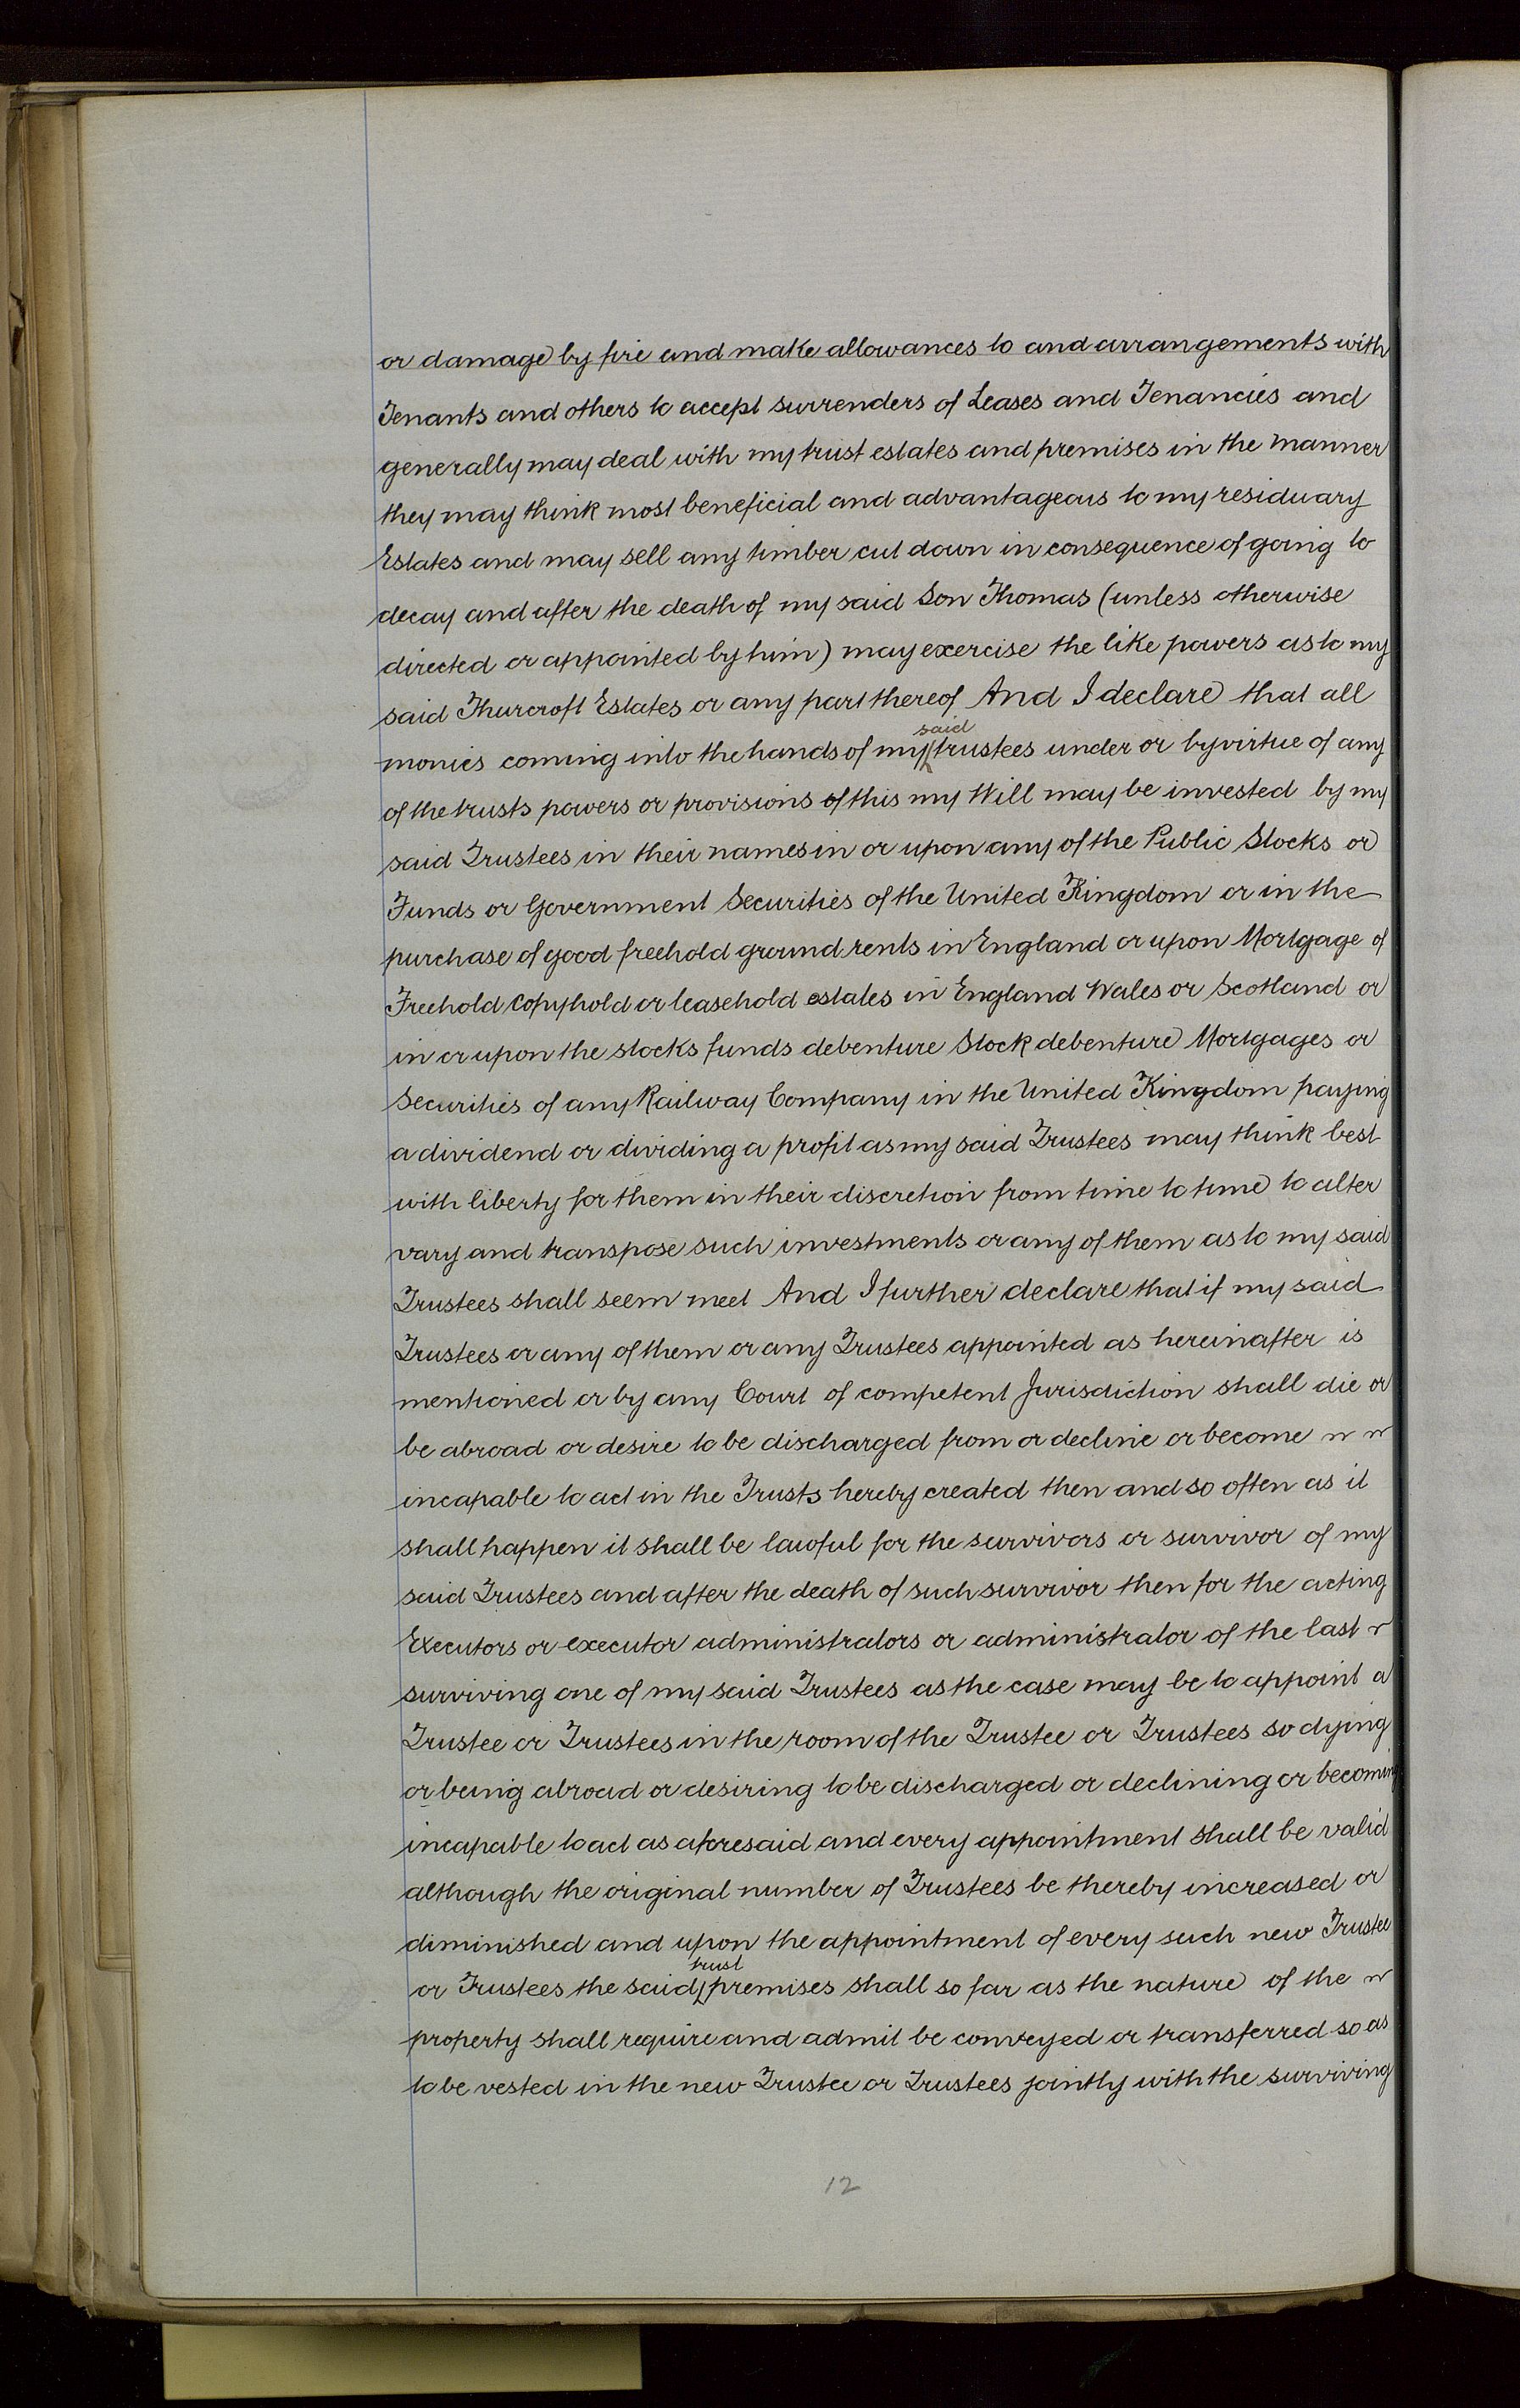 or damage by fire and make allowances to and arrangements with
Tenants and others to accept surrenders of Leases and Tenancies and
generally may deal with my trust estates and premises in the manner
they may think most beneficial and advantageous to my residuary
Estates and may sell any timber cut down in consequence of going to
decay and after the death of my said Son Thomas (unless otherwise
directed or appointed by him) may exercise the like powers as to my
said Thurcroft Estates or any part thereof And I declare that all
monies coming into the hands of my said trustees under or by virtue of any
of the trusts powers or provisions of this my Will may be invested by my
said Trustees in their names in or upon any of the Public Stocks or
Funds or Government Securities of the United Kingdom or in the
purchase of good freehold ground rents in England or upon Mortgage of
Freehold Copyhold or leasehold estates in England Wales or Scotland or
in or upon the stocks funds debenture Stock debenture Mortgages or
Securities of any Railway Company in the United Kingdom paying
a dividend or dividing a profit as my said Trustees may think best
with liberty for them in their discretion from time to time to alter
vary and transpose such investments or any of them as to my said
Trustees shall seem meet And I further declare that if my said
Trustees or any of them or any Trustees appointed as hereinafter is
mentioned or by any Court of competent Jurisdiction shall die or
be abroad or desire to be discharged from or decline or become
incapable to act in the Trusts hereby created then and so often as it
shall happen it shall be lawful for the survivors or survivor of my
said Trustees and after the death of such survivor then for the acting
Executors or executor administrators or administrator of the last
surviving one of my said Trustees as the case may be to appoint a
Trustee or Trustees in the room of the Trustee or Trustees so dying
or being abroad or desiring to be discharged or declining or becoming
incapable to act as aforesaid and every appointment shall be valid
although the original number of Trustees be thereby increased or
diminished and upon the appointment of every such new Trustee
or Trustees the said trust premises shall so far as the nature of the
property shall require and admit be conveyed or transferred so as
to be vested in the new Trustee or Trustees jointly with the surviving
12